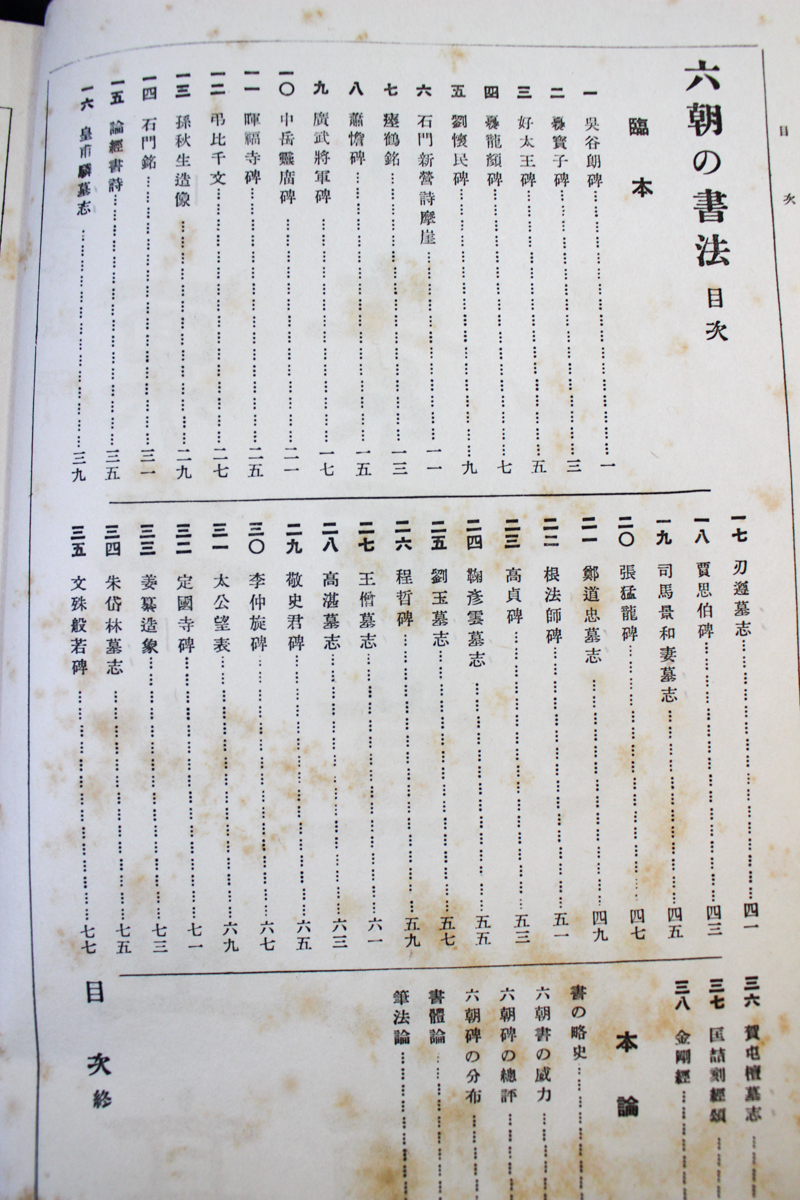 目次
六朝の書法 目次
臨本
一 吳谷朗碑……一
二 爨寶子碑……三
三 好太王碑……五
四 爨龍顏碑……七
五 劉懷民碑……九
六 石門新營詩摩崖……一一
七 瘞鶴銘……一三
八 蕭憺碑……一五
九 廣武將軍碑……一七
一〇 中岳靈廟碑……二一
一一 暉福寺碑……二五
一二 弔比干文……二七
一三 孫秋生造像……二九
一四 石門銘……三一
一五 論經書詩……三五
一六 皇甫驎墓志……三九
一七 刃遵墓志……四一
一八 賈思伯碑……四三
一九 司馬景和妻墓志……四五
二〇 張猛龍碑……四七
二一 鄭道忠墓志……四九
二二 根法師碑……五一
二三 高貞碑……五三
二四 鞠彥雲墓志……五五
二五 劉玉墓志……五七
二六 程哲碑……五九
二七 王僧墓志……六一
二八 高湛墓志……六三
二九 敬史君碑……六五
三〇 李仲旋碑……六七
三一 太公望表……六九
三二 定國寺碑……七一
三三 姜纂造象……七三
三四 朱岱林墓志……七五
三五 文殊般若碑……七七
三六 賀屯植墓志……
三七 匡喆刻經頌……
三八 金剛經……
本論
書の略史……
六朝書の威力……
六朝碑の總評……
六朝碑の分布……
書體論……
筆法論……
目次終